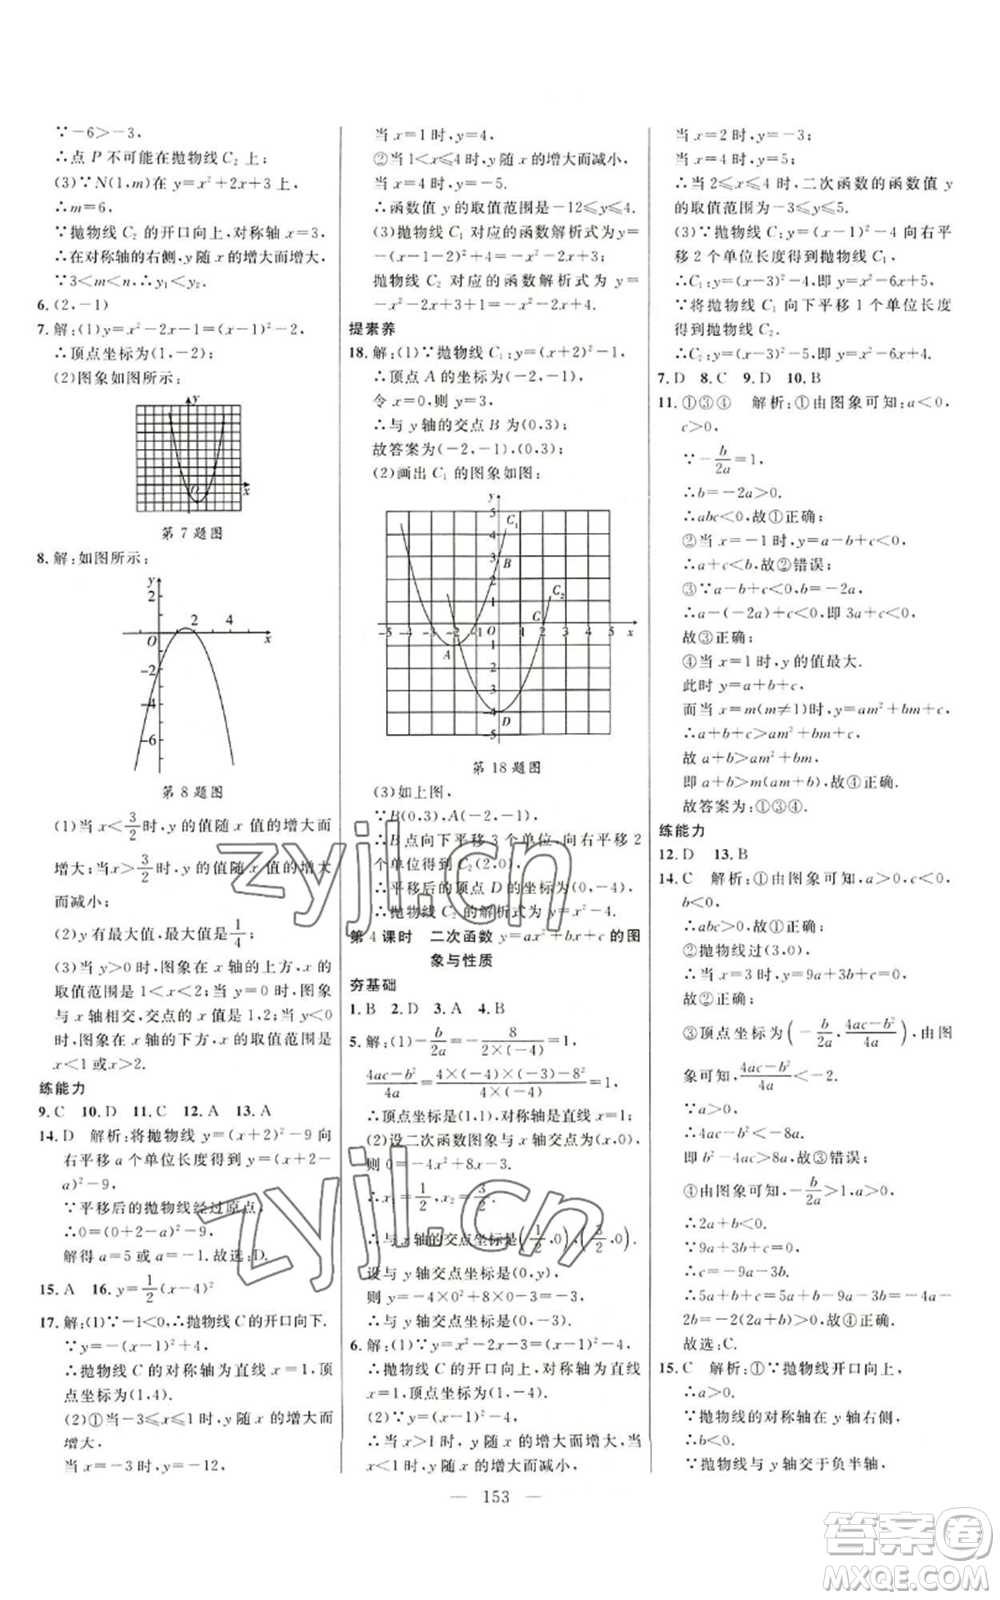 ∵－6＞－3，
∴点 P 不可能在抛物线 C₂ 上；
(3)∵N(1,m)在 y＝x²＋2x＋3 上，
∴m＝6，
∵抛物线 C₂ 的开口向上，对称轴 x＝3，
∴在对称轴的右侧，y 随 x 的增大而增大，
∵3＜m＜n，∴y₁＜y₂.
6. (2，－1)
7. 解：(1)y＝x²－2x－1＝(x－1)²－2，
∴顶点坐标为(1，－2)；
(2)图象如图所示：
y
O
x
第 7 题图
8. 解：如图所示：
y
2
O 2 4 x
－2
－4
－6
第 8 题图
(1)当 x＜3/2时，y 的值随 x 值的增大而
增大；当 x＞3/2时，y 的值随 x 值的增大
而减小；
(2)y 有最大值，最大值是1/4；
(3)当 y＞0 时，图象在 x 轴的上方，x 的
取值范围是 1＜x＜2；当 y＝0 时，图象
与 x 轴相交，交点的 x 值是 1，2；当 y＜0
时，图象在 x 轴的下方，x 的取值范围是
x＜1 或 x＞2.
练能力
9. C 10. D 11. C 12. A 13. A
14. D 解析：将抛物线 y＝(x＋2)²－9 向
右平移 a 个单位长度得到 y＝(x＋2－
a)²－9，
∵平移后的抛物线经过原点，
∴0＝(0＋2－a)²－9，
解得 a＝5 或 a＝－1. 故选：D.
15. A 16. y＝1/2(x－4)²
17. 解：(1)∵－1＜0，∴抛物线 C 的开口向下.
∵y＝－(x－1)²＋4，
∴抛物线 C 的对称轴为直线 x＝1，顶
点坐标为(1，4)；
(2)①当－3≤x≤1 时，y 随 x 的增大而
增大，
当 x＝－3 时，y＝－12，
当 x＝1 时，y＝4，
②当 1＜x≤4 时，y 随 x 的增大而减小，
当 x＝4 时，y＝－5.
∴函数值 y 的取值范围是－12≤y≤4.
(3)抛物线 C₁ 对应的函数解析式为 y＝
－(x－1＋2)²＋4＝－x²－2x＋3，
抛物线 C₂ 对应的函数解析式为 y＝
－x²－2x＋3＋1＝－x²－2x＋4.
提素养
18. 解：(1)∵抛物线 C₁：y＝(x＋2)²－1，
∴顶点 A 的坐标为(－2，－1)，
令 x＝0，则 y＝3，
∴与 y 轴的交点 B 为(0，3)；
故答案为(－2，－1)，(0，3)；
(2)画出 C₁ 的图象如图：
y
5 C₁
4
3
B
2 C₂
1 C
－5 －4 －3 －2 －1 O 1 2 3 4 5 x
A －1
－2
－3
－4
D
－5
第 18 题图
(3)如上图，
∵B(0，3)，A(－2，－1)，
∴B 点向下平移 3 个单位，向右平移 2
个单位得到 C₂(2，0)，
∴平移后的顶点 D 的坐标为(0，－4)，
∴抛物线 C₂ 的解析式为 y＝x²－4.
第 4 课时 二次函数 y＝ax²＋bx＋c 的图
象与性质
夯基础
1. B 2. D 3. A 4. B
5. 解：(1)－b/2a＝－8/(2×(－4))＝1，
(4ac－b²)/4a＝(4×(－4)×(－3)－8²)/(4×(－4))＝1，
∴顶点坐标是(1，1)，对称轴是直线 x＝1；
(2)设二次函数图象与 x 轴交点为(x，0)，
则 0＝－4x²＋8x－3，
∴x₁＝1/2，x₂＝3/2.
∴与 x 轴的交点坐标是(1/2，0)，(3/2，0).
设与 y 轴交点坐标是(0，y)，
则 y＝－4×0²＋8×0－3＝－3，
∴与 y 轴交点坐标是(0，－3).
6. 解：(1)∵y＝x²－2x－3＝(x－1)²－4，
∴抛物线的开口向上，对称轴是直线
x＝1，顶点坐标为(1，－4)；
(2)∵y＝(x－1)²－4，
∴当 x＞1 时，y 随 x 的增大而增大，当
x＜1 时，y 随 x 的增大而减小，
当 x＝2 时，y＝－3；
当 x＝4 时，y＝5；
∴当 2≤x≤4 时，二次函数的函数值 y
的取值范围为－3≤y≤5.
(3)∵抛物线 C：y＝(x－1)²－4 向右平
移 2 个单位长度得到抛物线 C₁，
∴C₁：y＝(x－3)²－4，即 y＝x²－6x＋5.
∵将抛物线 C₁ 向下平移 1 个单位长度
得到抛物线 C₂.
∴C₂：y＝(x－3)²－5，即 y＝x²－6x＋4.
7. D 8. C 9. D 10. B
11. ①③④ 解析：①由图象可知：a＜0，
c＞0，
∵－b/2a＝1，
∴b＝－2a＞0.
∴abc＜0，故①正确；
②当 x＝1 时，y＝a＋b＋c＞0，
∴a＋c＞－b，故②错误；
③∵x＝－1 时，y＜0，b＝－2a，
∴a－(－2a)＋c＜0，即 3a＋c＜0，
故③正确；
④当 x＝1 时，y 的值最大.
此时 y＝a＋b＋c，
而当 x＝m(m≠1)时，y＝am²＋bm＋c，
∴a＋b＋c＞am²＋bm＋c.
故 a＋b＞am²＋bm，
即 a＋b＞m(am＋b)，故④正确.
故答案为：①③④.
练能力
12. D 13. B
14. C 解析：①由图象可知，a＞0，c＜0，
b＜0，
∴abc＞0，故①正确；
②抛物线过(3，0)，
∴当 x＝3 时，y＝9a＋3b＋c＝0，
故②正确；
③顶点坐标为(－b/2a，(4ac－b²)/4a)，由图
象可知，(4ac－b²)/4a＜－2.
∵a＞0，
∴4ac－b²＜－8a.
即 b²－4ac＞8a，故③错误；
④由图象可知，－b/2a＞1，a＞0，
∴2a＋b＜0.
∵9a＋3b＋c＝0，
∴c＝－9a－3b，
∴5a＋b＋c＝5a＋b－9a－3b＝－4a－
2b＝－2(2a＋b)＞0，故④正确.
故选：C.
15. C 解析：①∵抛物线开口向上，
∴a＞0.
∵抛物线的对称轴在 y 轴右侧，
∴b＜0.
∵抛物线与 y 轴交于负半轴，
— 153 —
zyjl.cn
zyjl.cn
答案圈
MXQE.COM